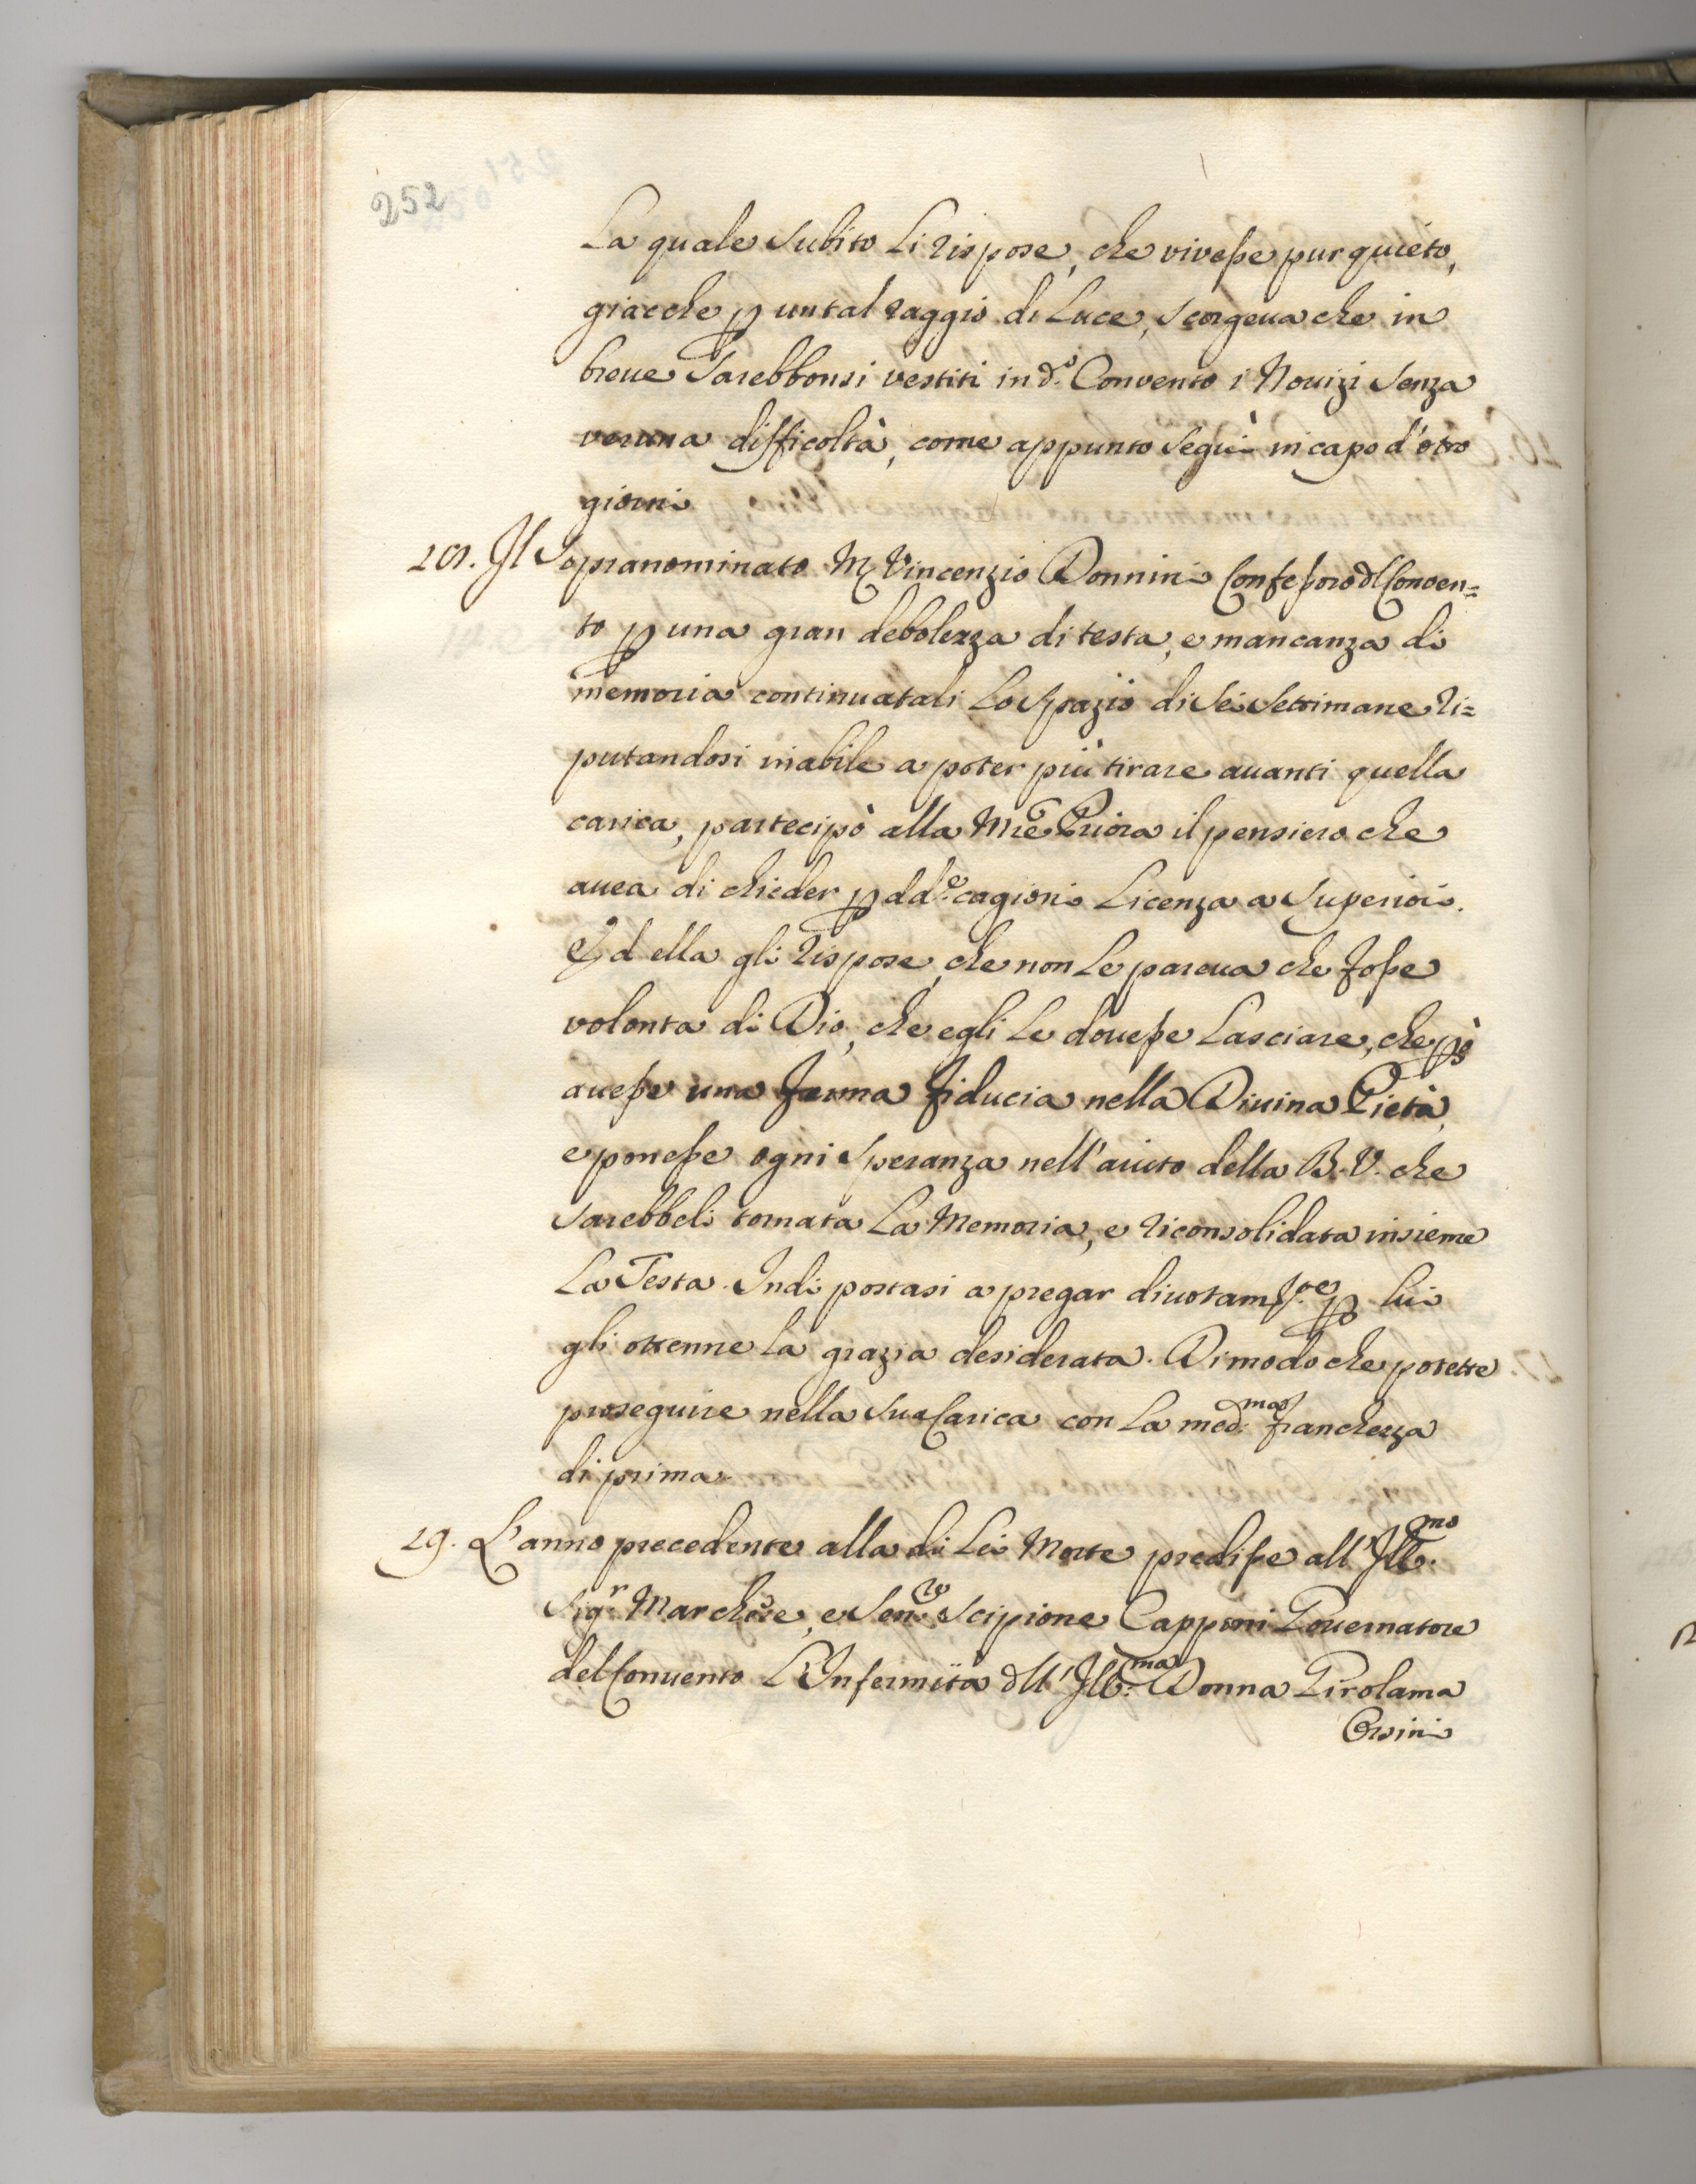 252
La quale subito li rispose, che vivesse pur quieto,
giacche p un tal raggio di Luce, scorgeua che in
breue sarebbonsi vestiti in d.º Convento i Nouizi senza
veruna difficoltà, come appunto seguì in capo d'otto
giorni
28. Il Sopranominato M Vincenzio Donnini Confessoro dl Conven=
to p una gran debolezza di testa, e mancanza di
memoria continuatali lo spazio di sei settimane ri=
putandosi inabile a poter più tirare auanti quella
carica, partecipò alla Mre Priora il pensiero che
auea di chieder p dd.e cagioni Licenza a Superiori.
Ed ella gli rispose, che non le pareua che fosse
volonta di Dio, che egli le douesse lasciare, che pò
auesse una ferma fiducia nella Diuina Pietà,
e ponesse ogni speranza nell'aiuto della B. V. che
sarebbeli tornata la Memoria, e riconsolidata insieme
la Testa. Indi postasi a pregar diuotam.te p lui
gli ottenne la grazia desiderata. Di modo che potette
proseguire nella sua Carica con la med.ma franchezza
di prima.
29. L'anno precedente alla di lei Morte predisse all'Ill.mo
Sig.r Marchese, e Sen.re Scipione Capponi Gouernatore
del Conuento L'Infermita dll'Ill.ma Donna Girolama
Orsini